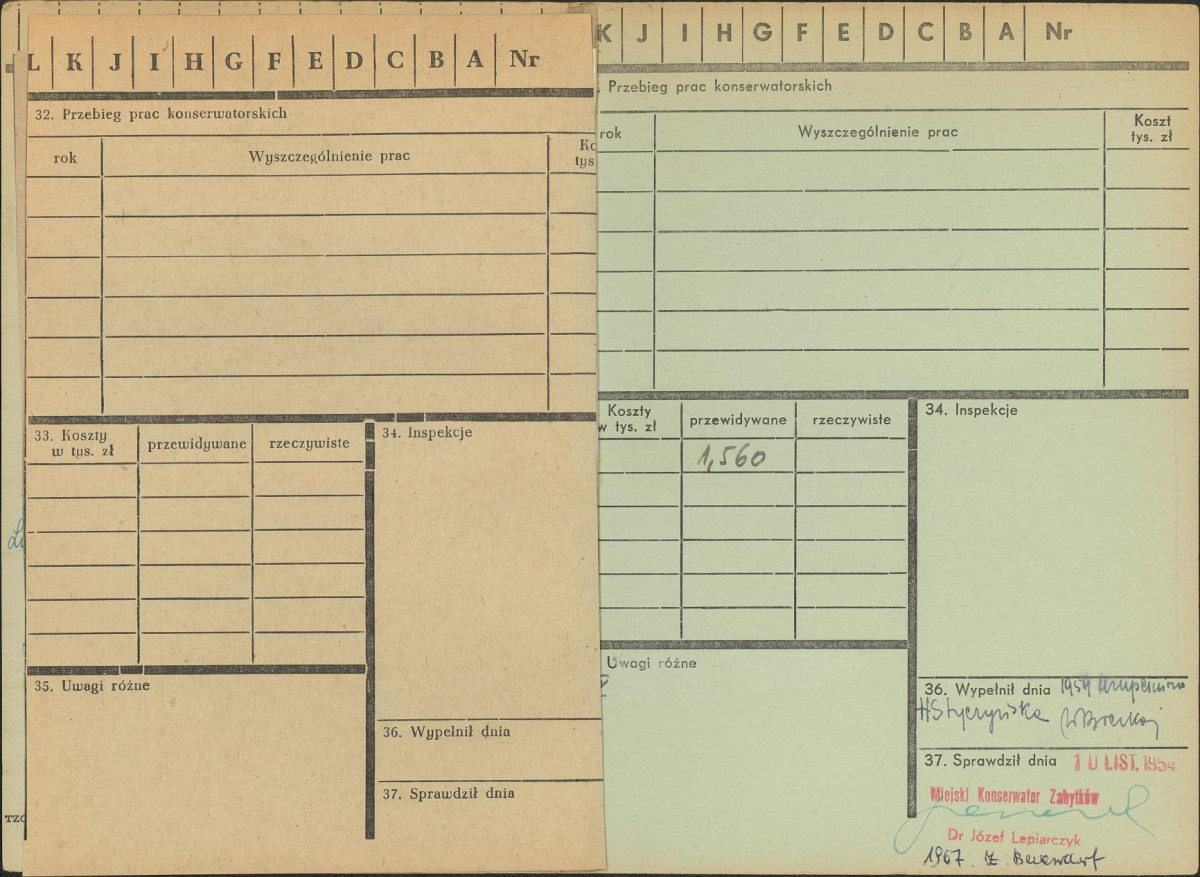 L K J I H G F E D C B A Nr
32. Przebieg prac konserwatorskich
rok Wyszczególnienie prac Ko
tys
33. Koszty
w tys. zł
przewidywane rzeczywiste
34. Inspekcje
35. Uwagi różne
36. Wypełnił dnia
37. Sprawdził dnia
TZG
K J I H G F E D C B A Nr
Przebieg prac konserwatorskich
rok Wyszczególnienie prac Koszt
tys. zł
Koszty
w tys. zł
przewidywane rzeczywiste
1,560
34. Inspekcje
Uwagi różne
36. Wypełnił dnia 1959
HStyczyńska
37. Sprawdził dnia 10 LIST. 1954
Miejski Konserwator Zabytków
Dr Józef Lepiarczyk
1967.